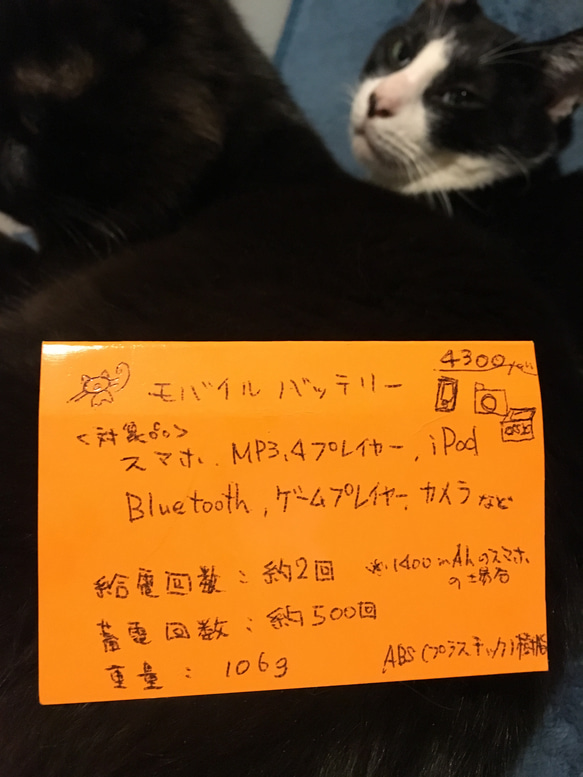 4300yen
モバイル バッテリー
<対象品>
スマホ、MP3、4プレイヤー、iPod
Bluetooth、ゲームプレイヤー、カメラなど
給電回数：約2回 ※1400mAhのスマホ
の場合
蓄電回数：約500回
重量：106g
ABS(プラスチック)樹脂